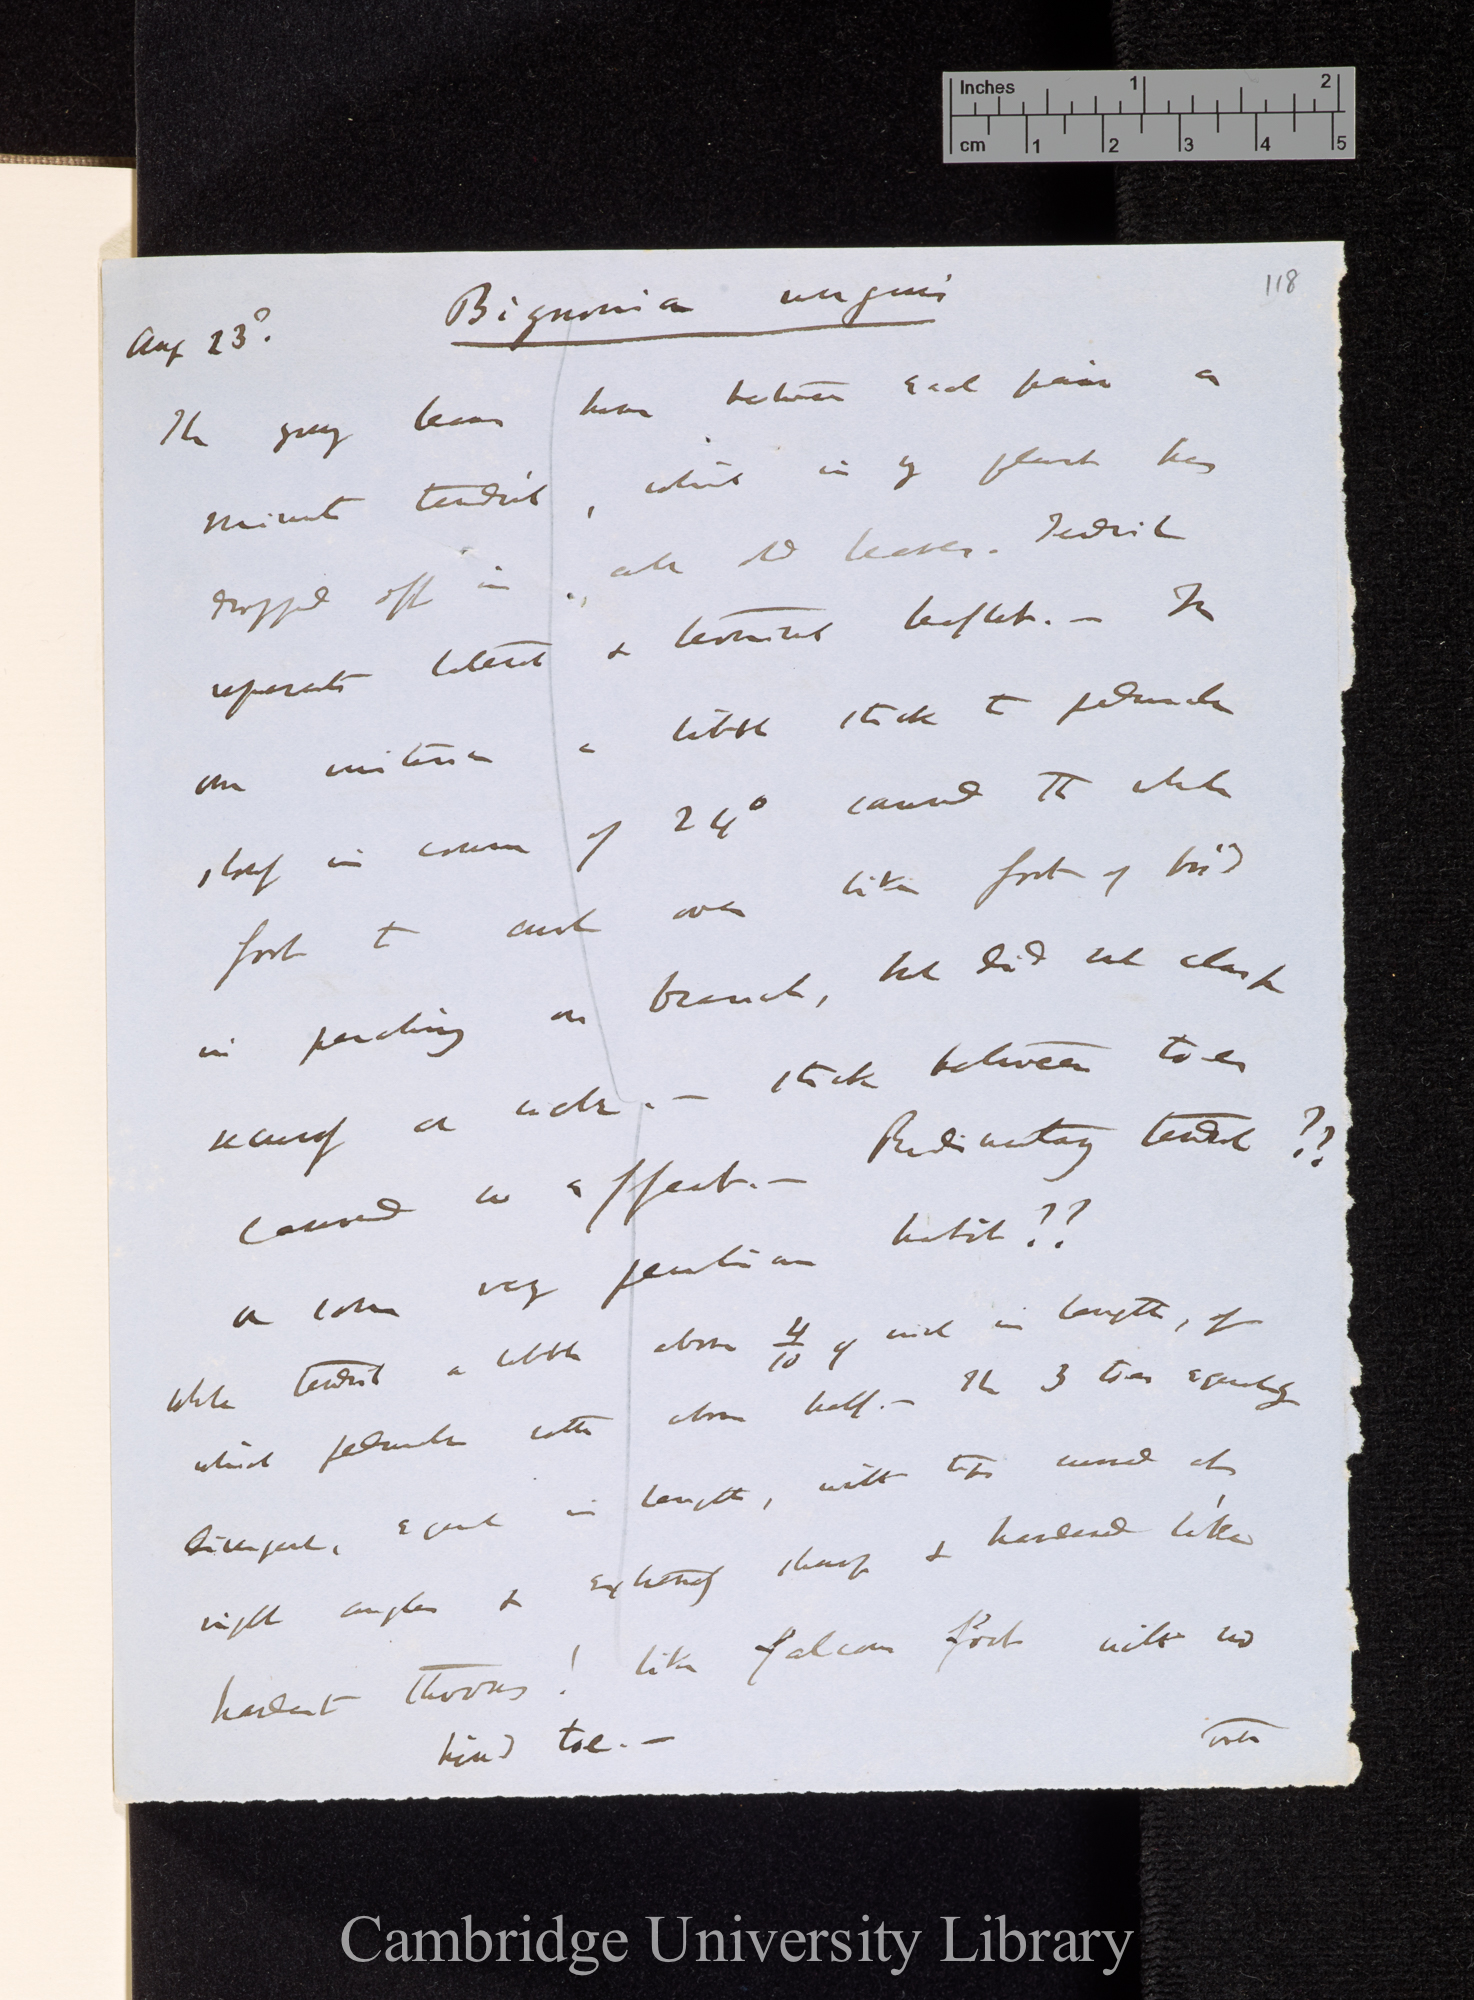 Inches 1 2
cm 1 2 3 4 5
118
Bignonia unguis
Aug 23d.
The young leaves have between each pair a
minute tendril, which in my plant has
dropped off in all old leaves. Tendril
separate lateral & terminal leaflets. — The
one a little stick to peduncle
in course of 24° caused the whole
foot to curl over like foot of bird
in perching on branch, but did not clasp
securely or well. — Stick between toes
caused no effect. — Rudimentary tendril ??
or some very peculiar habit ??
Whole tendril a little above 4/10 of inch in length, of
which peduncle rather above half. — The 3 toes equally
divergent, equal in length, with tips curved at
right angles & extremely sharp & hardened like
hardest thorns! like falcon foot with no
hind toe. —
Over
Cambridge University Library